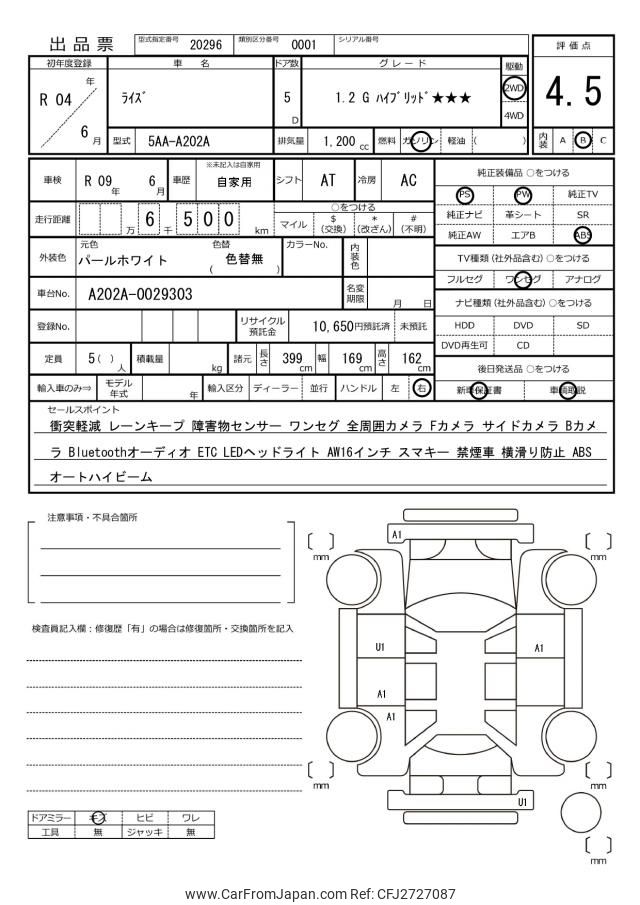 出品票
型式指定番号 20296 類別区分番号 0001 シリアル番号
評価点
4.5
内装 A B C
初年度登録 車名 ドア数 グレード 駆動
R 04 年 6 月
ライズ 5 D 1.2 G ハイブリッド★★★ 2WD
4WD
型式 5AA-A202A 排気量 1,200 cc 燃料 ガソリン 軽油 ( )
車検 R 09 年 6 月 車歴 ※未記入は自家用 自家用 シフト AT 冷房 AC
走行距離 万 6 千 5 0 0 km
○をつける
マイル $(交換) *(改ざん) #(不明)
外装色 元色 パールホワイト 色替 ( 色替無 ) カラーNo. 内装色
車台No. A202A-0029303 名変期限 月 日
登録No. リサイクル預託金 10,650円預託済 未預託
定員 5( ) 人 積載量 kg 諸元 長さ 399 cm 幅 169 cm 高さ 162 cm
輸入車のみ⇒ モデル年式 年 輸入区分 ディーラー 並行 ハンドル 左 右
純正装備品 ○をつける
PS PW 純正TV
純正ナビ 革シート SR
純正AW エアB ABS
TV種類 (社外品含む) ○をつける
フルセグ ワンセグ アナログ
ナビ種類 (社外品含む) ○をつける
HDD DVD SD
DVD再生可 CD
後日発送品 ○をつける
新車保証書 車輌取説
セールスポイント
衝突軽減 レーンキープ 障害物センサー ワンセグ 全周囲カメラ Fカメラ サイドカメラ Bカメ
ラ Bluetoothオーディオ ETC LEDヘッドライト AW16インチ スマキー 禁煙車 横滑り防止 ABS
オートハイビーム
注意事項・不具合箇所
検査員記入欄：修復歴「有」の場合は修復箇所・交換箇所を記入
ドアミラー キズ ヒビ ワレ
工具 無 ジャッキ 無
[ ] mm
A1
[ ] mm
U1
A1
A1
A1
[ ] mm
U1
[ ] mm
[ ] mm
www.CarFromJapan.com Ref: CFJ2727087